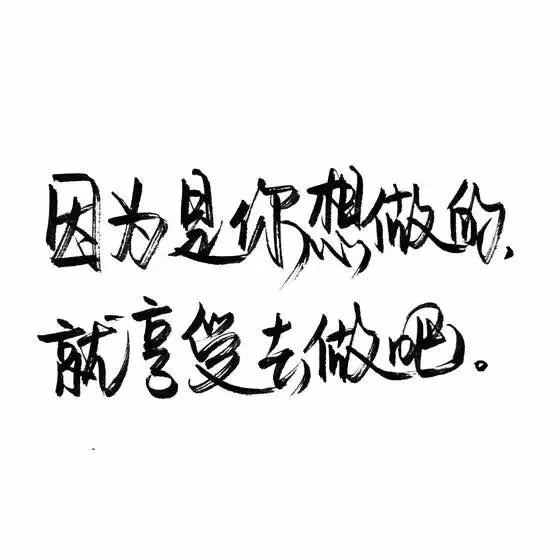 因为是你想做的、
就享受去做吧。